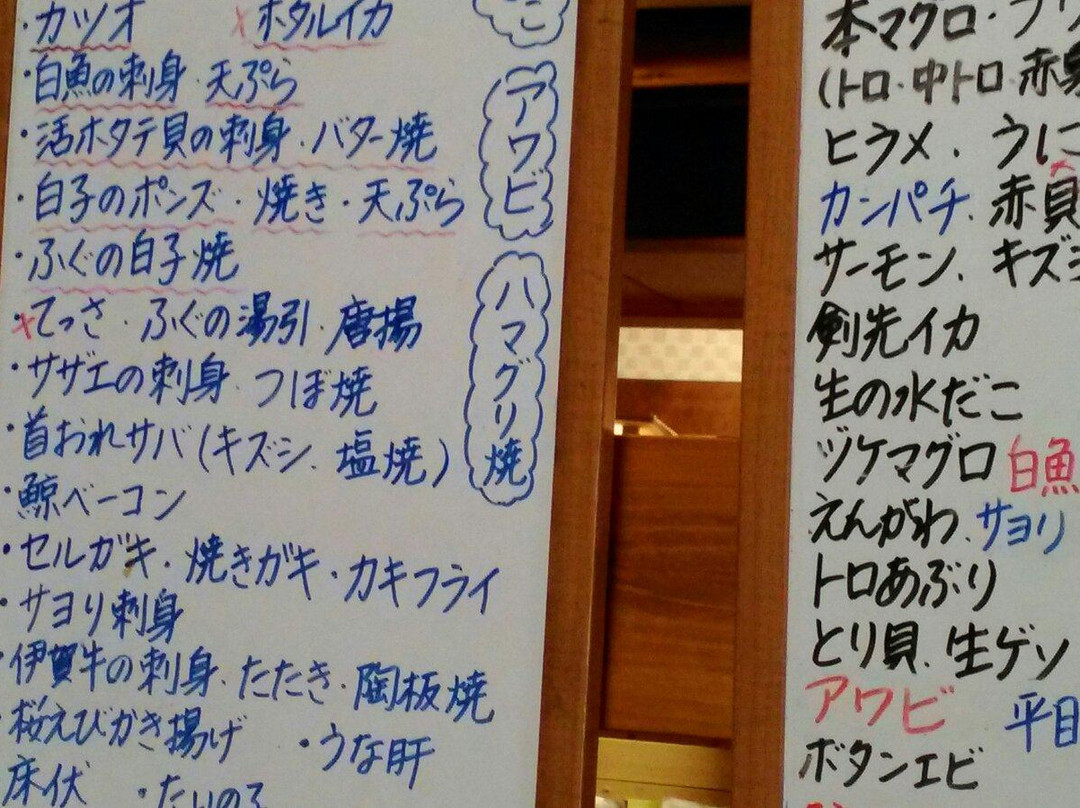 ・カツオ ×ホタルイカ
・白魚の刺身・天ぷら
・活ホタテ貝の刺身・バター焼
・白子のポンズ・焼き・天ぷら
・ふぐの白子焼
×てっさ・ふぐの湯引・唐揚
・サザエの刺身・つぼ焼
・首おれサバ(キズシ、塩焼)
・鯨ベーコン
・セルガキ・焼きガキ・カキフライ
・サヨリ刺身
・伊賀牛の刺身・たたき・陶板焼
・桜えびかき揚げ ・うな肝
床伏
アワビ
ハマグリ焼
本マグロ・
(トロ・中トロ・赤身
ヒラメ、うに
カンパチ、赤貝
サーモン、キズシ
剣先イカ
生の水だこ
ヅケマグロ 白魚
えんがわ、サヨリ
トロあぶり
とり貝、生ゲソ
アワビ 平目
ボタンエビ